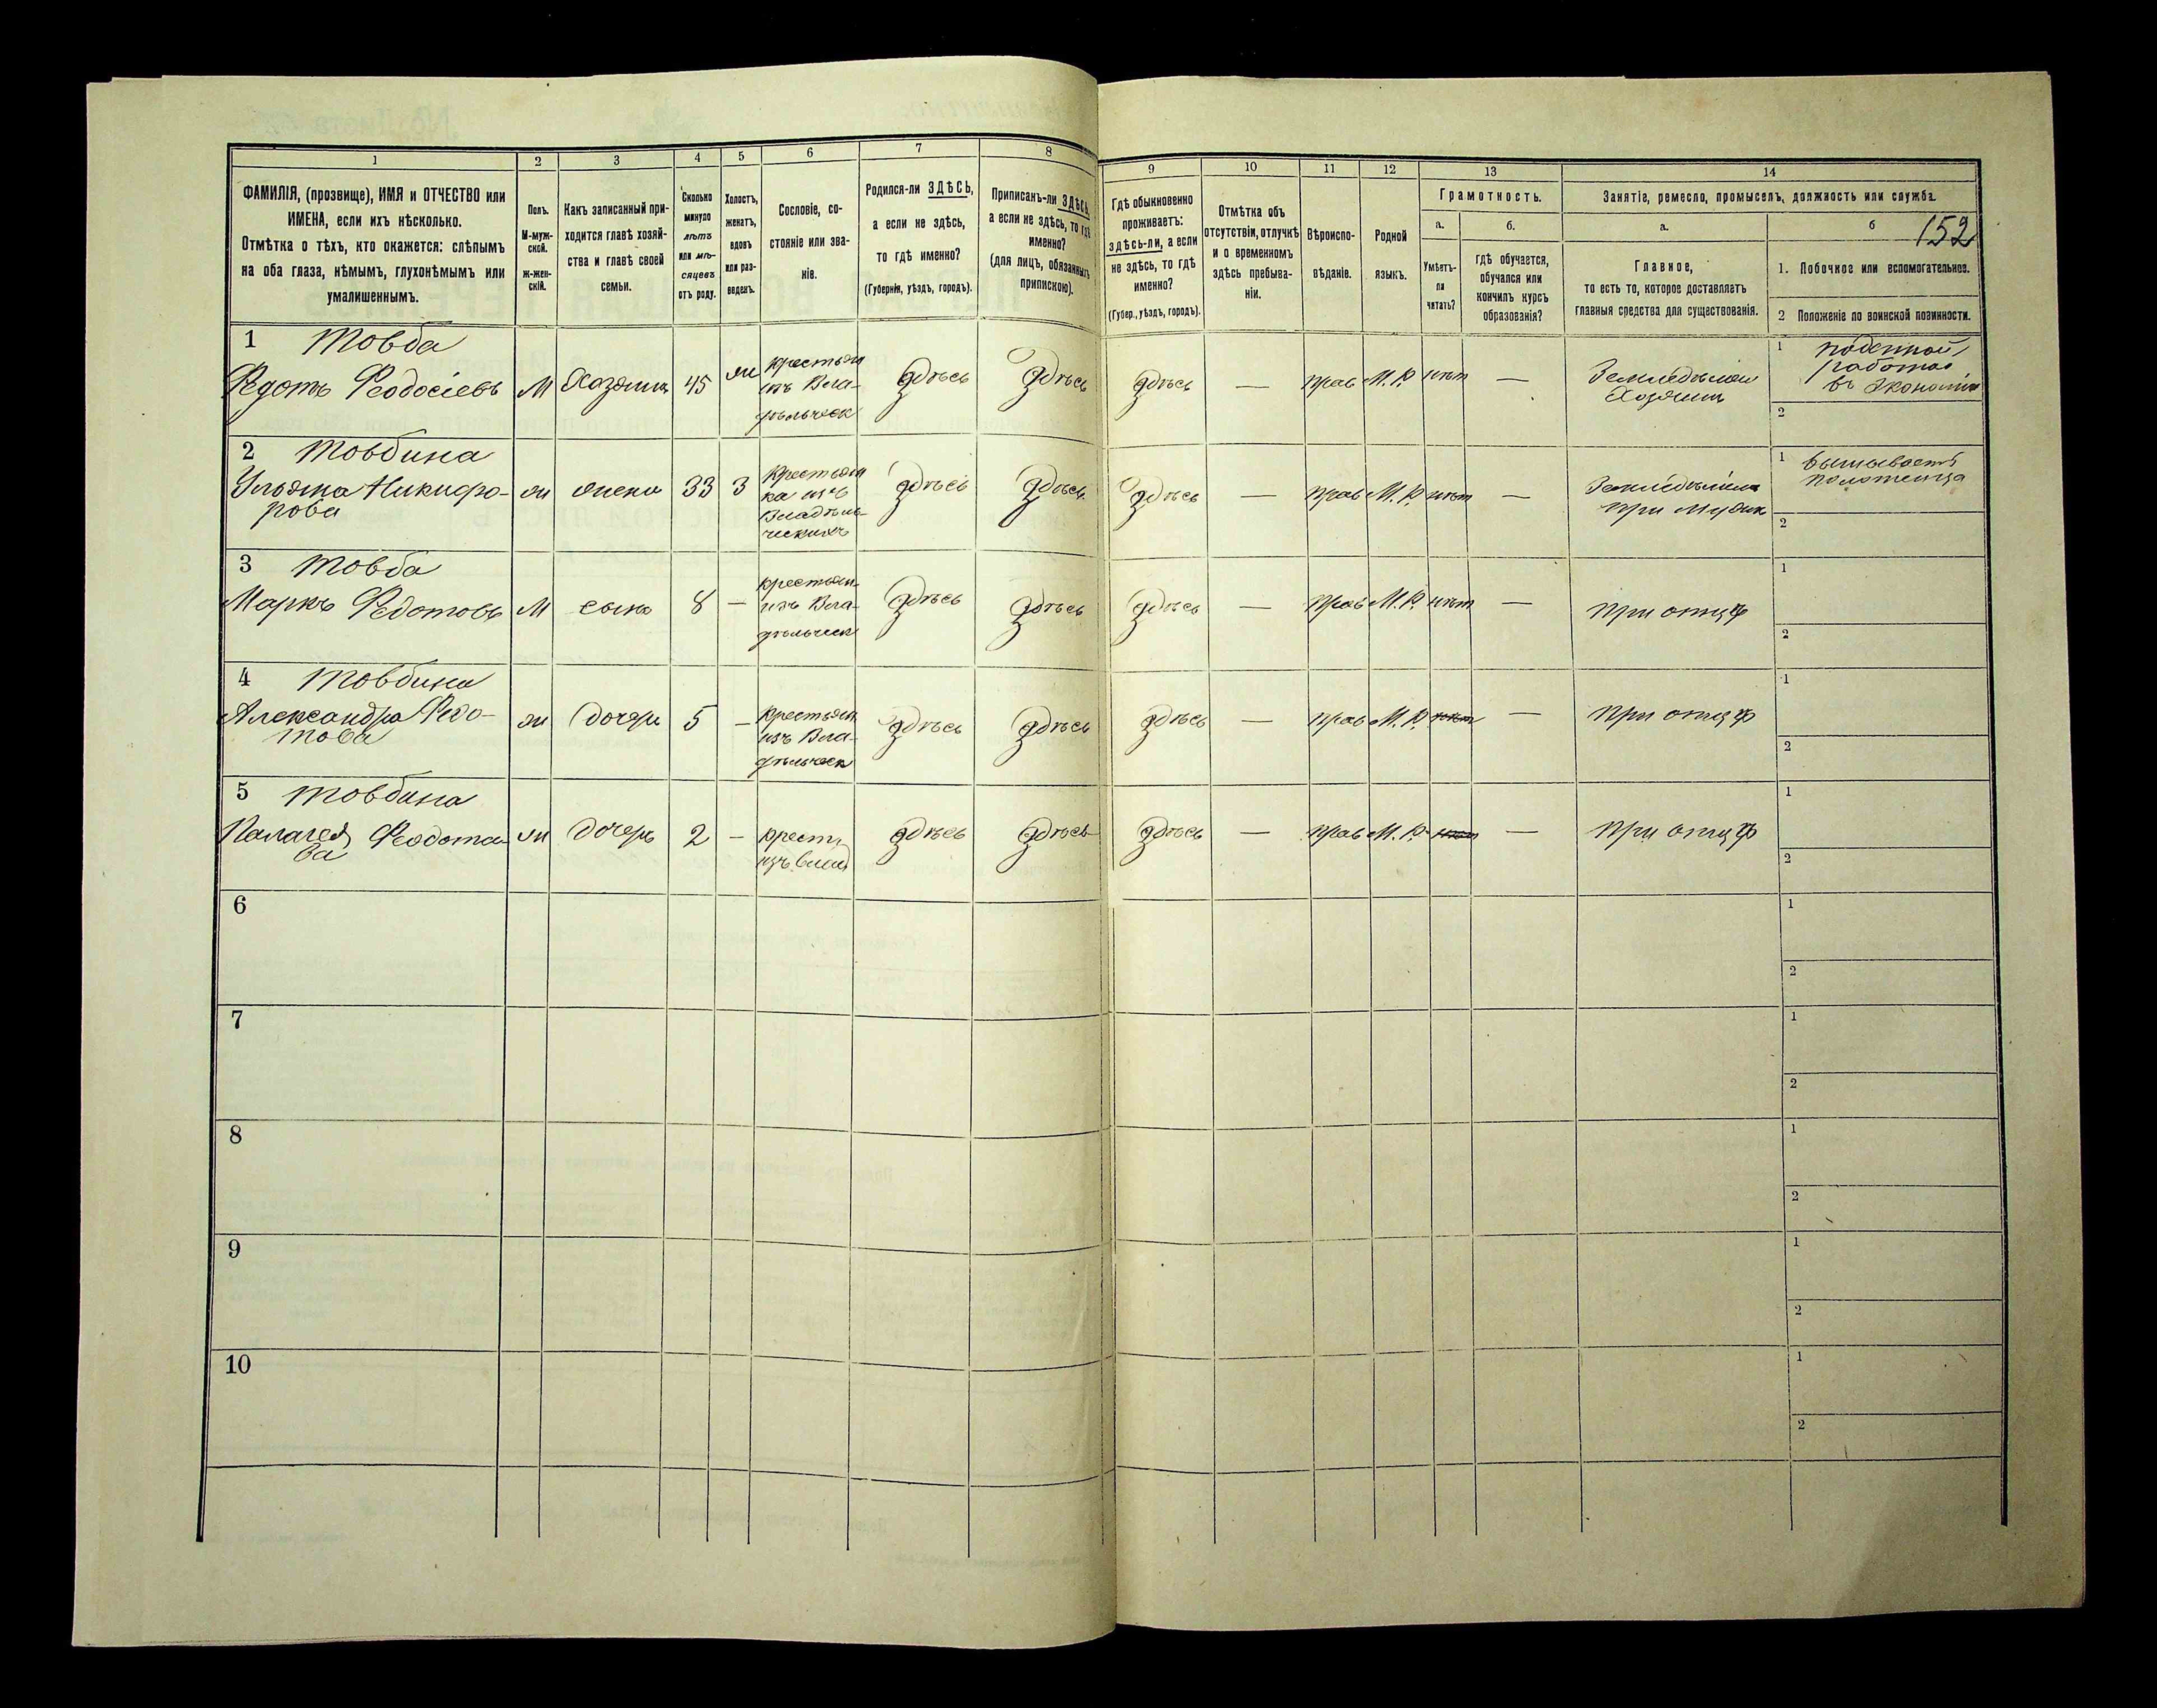 1
2
3
4
5
6
7
8
ФАМИЛІЯ, (прозвище), ИМЯ и ОТЧЕСТВО или
ИМЕНА, если ихъ нѣсколько.
Отмѣтка о тѣхъ, кто окажется: слѣпымъ
на оба глаза, нѣмымъ, глухонѣмымъ или
умалишеннымъ.
Полъ.
М-муж-
ской.
ж-жен-
скій.
Какъ записанный при-
ходится главѣ хозяй-
ства и главѣ своей
семьи.
Сколько
минуло
лѣтъ
или мѣ-
сяцевъ
отъ роду.
Холостъ,
женатъ,
вдовъ
или раз-
веденъ.
Сословіе, со-
стояніе или зва-
ніе.
Родился-ли ЗДѢСЬ,
а если не здѣсь,
то гдѣ именно?
(Губернія, уѣздъ, городъ).
Приписанъ-ли ЗДѢСЬ,
а если не здѣсь, то гдѣ
именно?
(для лицъ, обязанныхъ
припискою).
9
10
11
12
13
14
Гдѣ обыкновенно
проживаетъ:
здѣсь-ли, а если
не здѣсь, то гдѣ
именно?
(Губер., уѣздъ, городъ).
Отмѣтка объ
отсутствіи, отлучкѣ
и о временномъ
здѣсь пребыва-
ніи.
Вѣроиспо-
вѣданіе.
Родной
языкъ.
Грамотность.
а.
Умѣетъ-
ли
читать?
б.
гдѣ обучается,
обучался или
кончилъ курсъ
образованія?
Занятіе, ремесло, промыселъ, должность или служба.
а.
Главное,
то есть то, которое доставляетъ
главныя средства для существованія.
б
152
1. Побочное или вспомогательное.
2 Положеніе по воинской повинности.
1 Товба
Федотъ Феодосіевъ
М
Хозяинъ
45
ж
крестьян
изъ Вла-
дѣльческ
здѣсь
здѣсь
здѣсь
—
прав
М. Р.
нѣт
—
Земледѣлія
Хозяинъ
1 поденной
работой
въ экономіи
2
2 Товбина
Ульяна Никифо-
рова
ж
жена
33
З
Крестьян
ка изъ
Владѣль-
ческихъ
здѣсь
здѣсь
здѣсь
—
прав
М. Р.
нѣт
—
при мужѣ
1 вышиваетъ
полотенца
2
3 Товба
Маркъ Федотовъ
М
сынъ
8
—
крестьян-
изъ Вла-
дѣльческ
здѣсь
здѣсь
здѣсь
—
прав
М. Р.
нѣт
—
при отцѣ
1
2
4 Товбина
Александра Федо-
това
ж
дочерь
5
—
крестьян
изъ Вла-
дѣльческ
здѣсь
здѣсь
здѣсь
—
прав
М. Р.
нѣт
—
при отцѣ
1
2
5 Товбина
Палагея Феодото-
ва
ж
дочерь
2
—
крест
изъ влад
здѣсь
здѣсь
здѣсь
—
прав
М. Р.
нѣт
—
при отцѣ
1
2
6
1
2
7
1
2
8
1
2
9
1
2
10
1
2